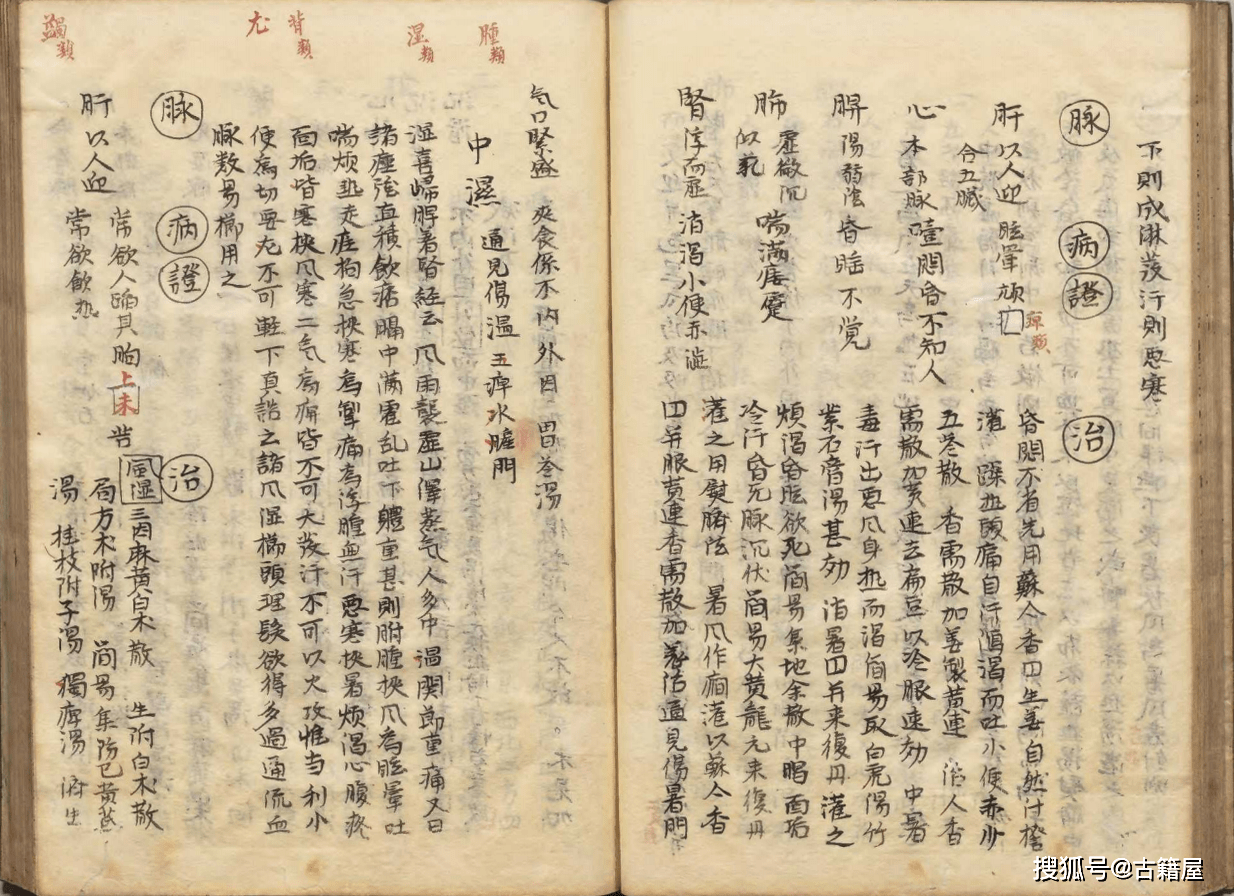 下則成淋發汗則惡寒
脉 病證 治
肝 以人迎 眩暈頑 痺類
合五臟
心 本部脉 噎悶昏不知人
脾 陽弱陰 昏睡不覚
肺 虛微沉 喘滿痿躄
似芤
腎 浮而虛 消渴小便赤澁
昏悶不省先用蘇合香四生姜自然汁
灌 躁热頭痛自汗瀉渴而吐小便赤少
五苓散 香需散加姜製黃連 人香
需散加黃連去扁豆以冷服速効 中暑
毒汗出惡風身热而渴簡易取白虎湯竹
紫石膏湯甚効 治暑四并来復丹灌之
煩渴昏眩欲死簡易集地余散中暍面垢
冷汗昏无脉沉伏簡易大黃龍元来復丹
灌之用熨臍法 暑風作癎 以蘇合香
四并服黃連香需散加羌活通見傷暑門
腫類
湿類
背類
尤
蠲類
気口緊盛 爽食係不内外因 胃苓湯
中濕 通見傷温 五痺水腫門
湿喜歸脾著腎経云風雨襲虛山澤蒸气人多中湿関節重痛又曰
諸痙強直積飲痞膈中滿霍乱吐下體重甚則胕腫挾風為眩暈吐
喘煩热走疰拘急挾寒為攣痛為浮腫無汗惡寒挾暑煩渴心腹疼
面垢皆寒挾風寒二气為病皆不可大發汗不可以火攻惟当利小
便為切要尤不可軽下真誥云諸風湿櫛頭理髮欲得多過通流血
脉数易櫛用之
脉 病證 治
肝 以人迎 常欲人蹋其胸上未苦
常欲飲热
風湿 三因麻黃白朮散 生附白朮散
局方朮附湯 簡易集防已黃蓍
湯 桂枝附子湯 蠲痺湯 済生
搜狐号@古籍屋